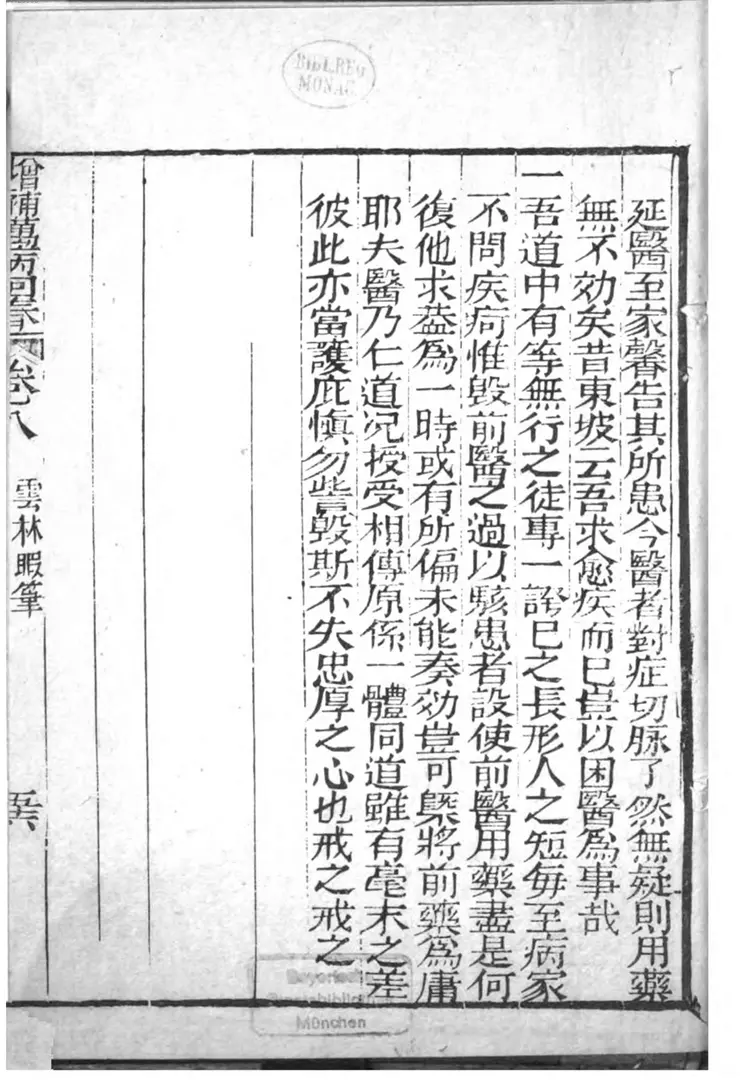 延醫至家罄告其所患令醫者對症切脉了然無疑則用藥
無不効矣昔東坡云吾求愈疾而已豈以困醫為事哉
一吾道中有等無行之徒專一誇巳之長形人之短每至病家
不問疾疴惟毀前醫之過以駭患者設使前醫用藥盡是何
復他求葢為一時或有所偏未能奏効豈可槩將前藥為庸
耶夫醫乃仁道况授受相傳原係一體同道雖有毫末之差
彼此亦當護庇愼勿訾毀斯不失忠厚之心也戒之戒之
增補萬病回春 卷八
雲林暇筆
五六
BIBL.REG
MONAC.
Bayerische
Staatsbibliothek
München